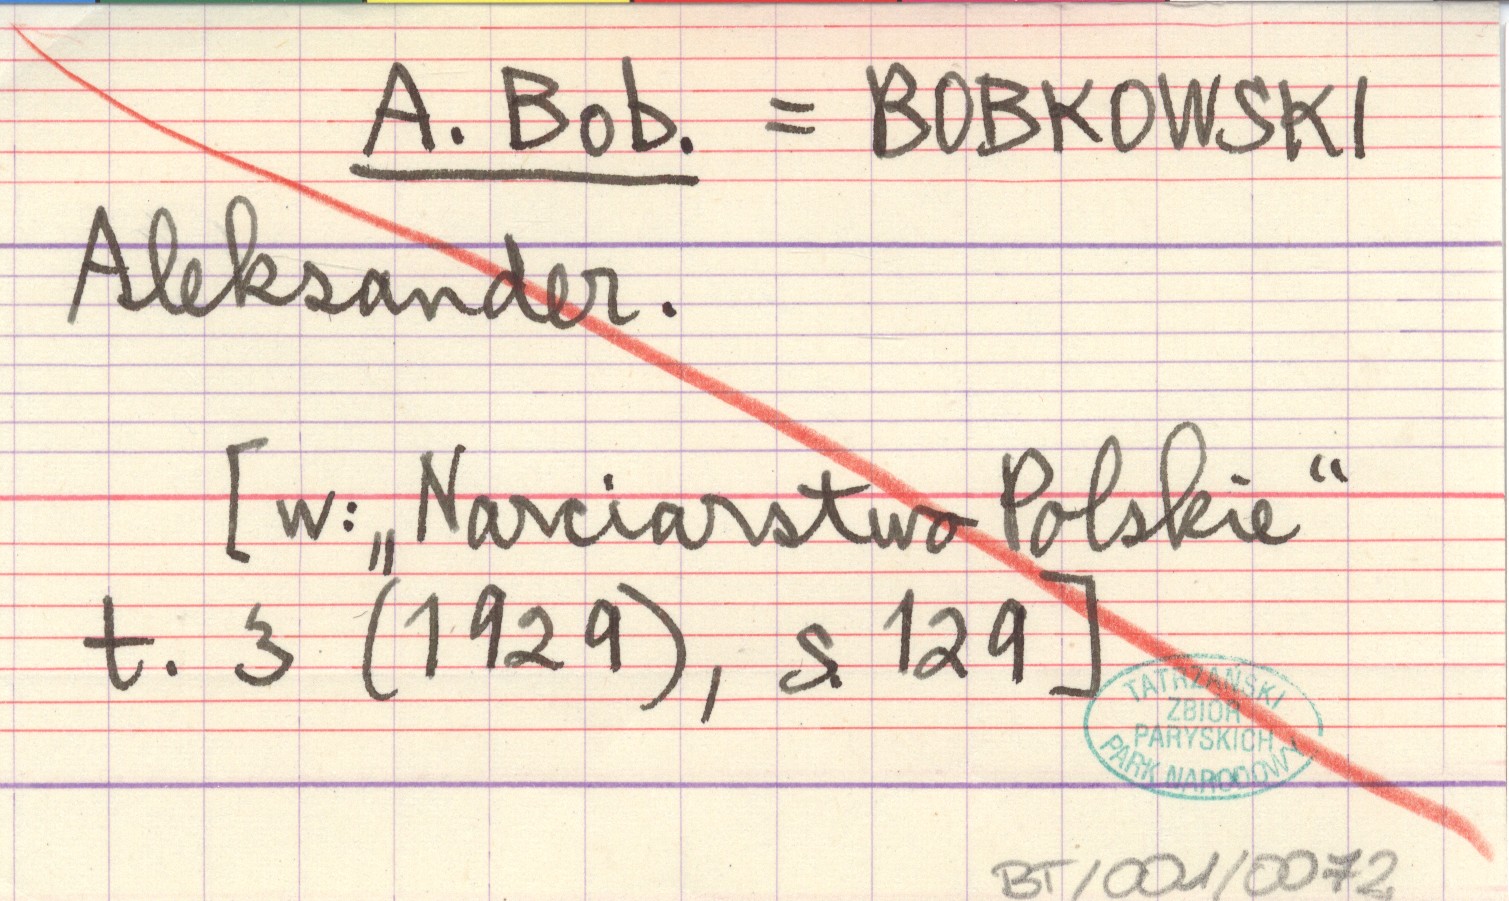 A. Bob. = BOBKOWSKI
Aleksander.
[w: „Narciarstwo Polskie“
t. 3 (1929), s. 129]
TATRZAŃSKI
ZBIÓR
PARYSKICH
PARK NARODOWY
BT/001/0072